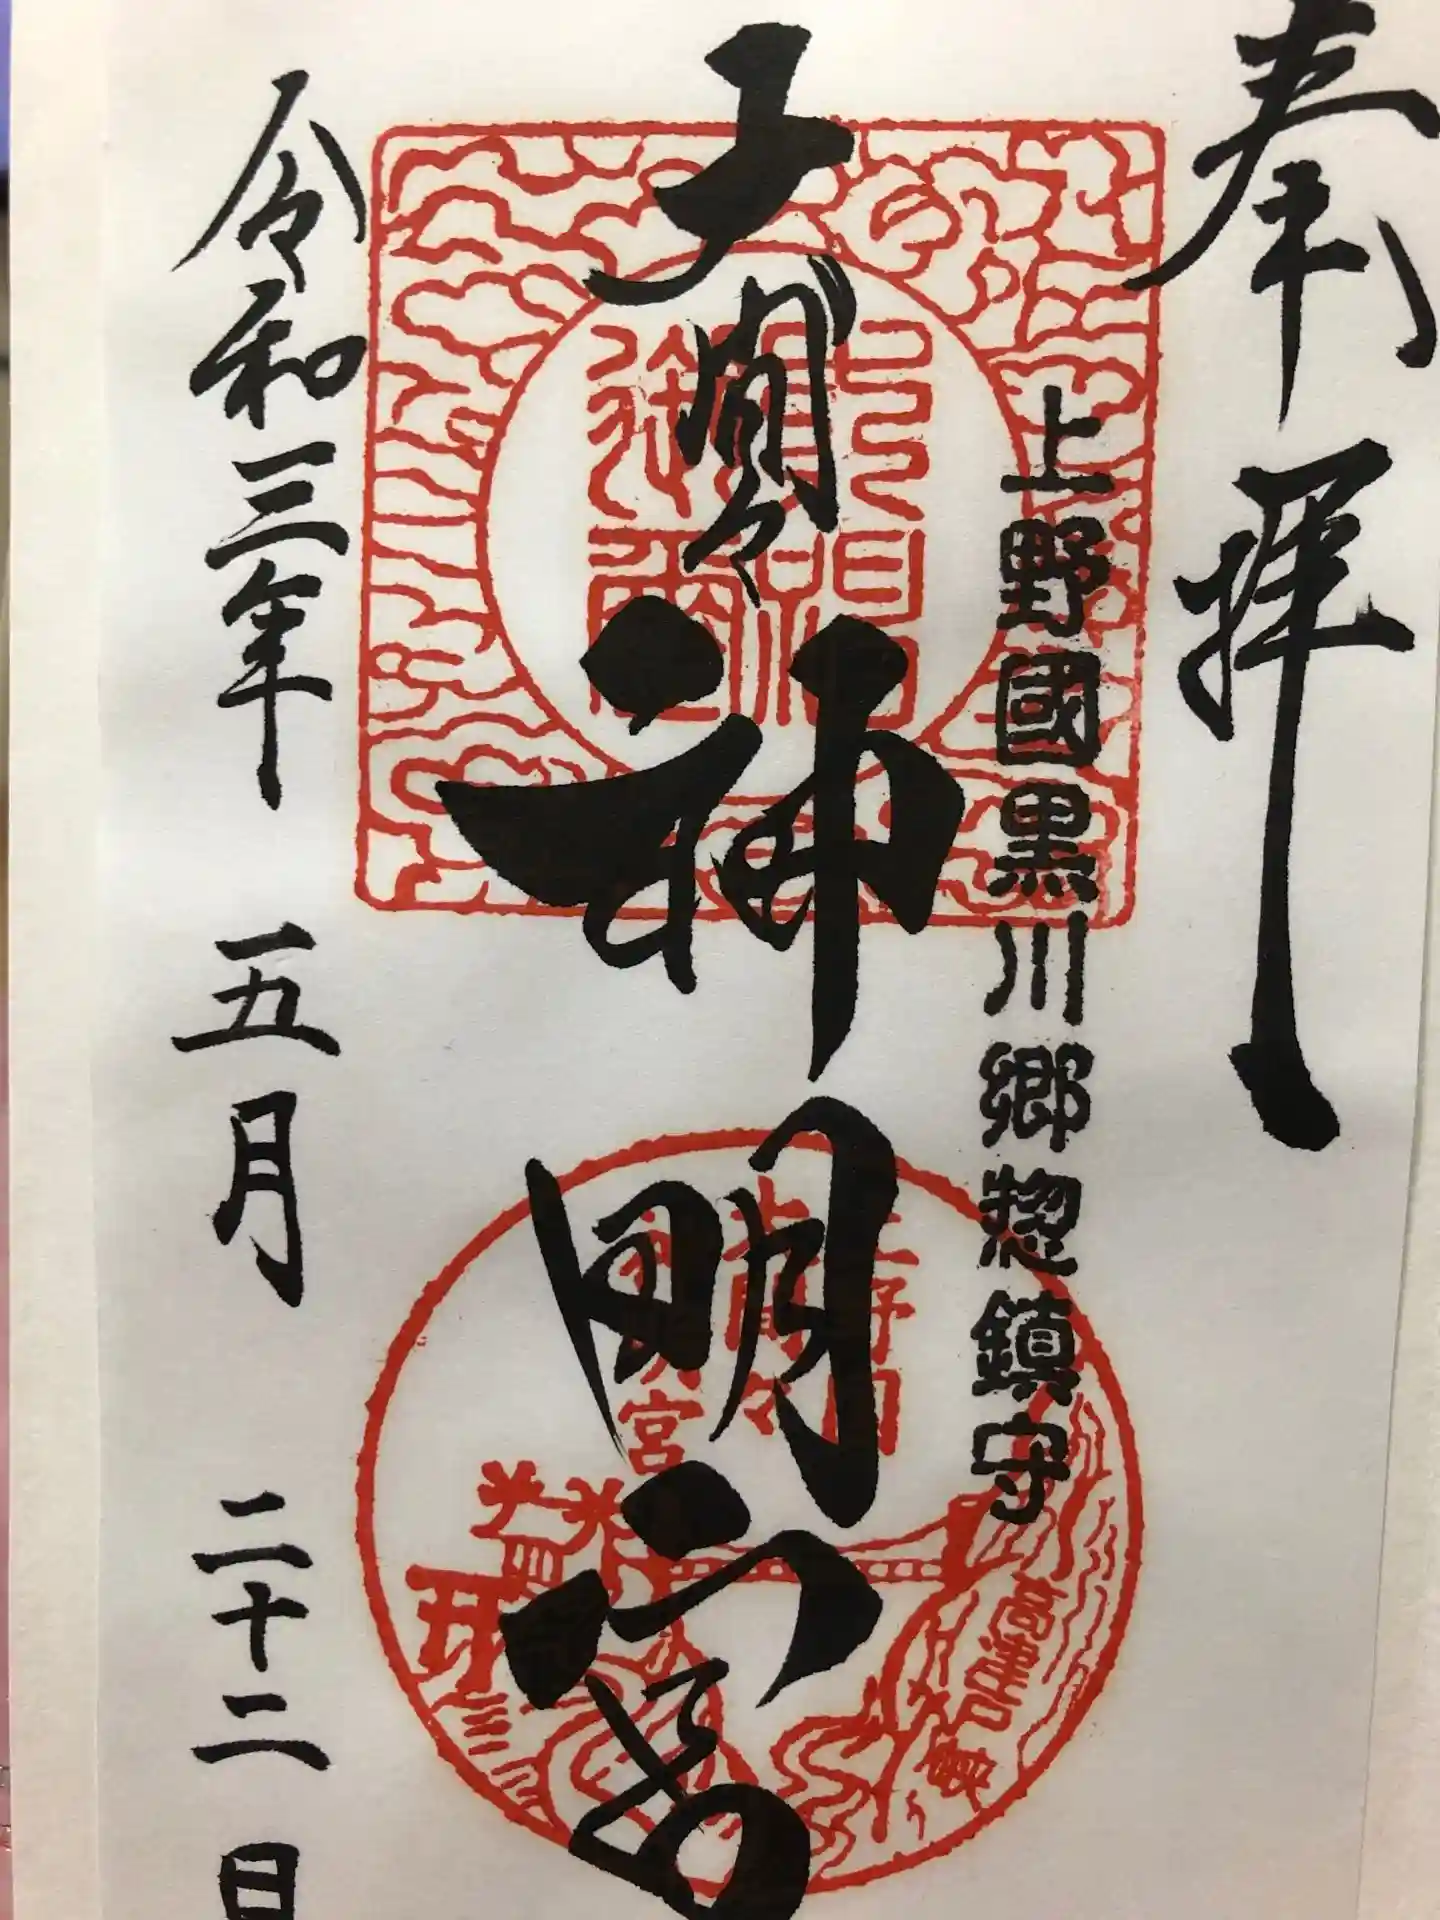 奉拝
上野國黒川郷惣鎮守
大間々神明宮
令和三年 五月 二十二日
上野国
大間々
神明宮
高津戸峡